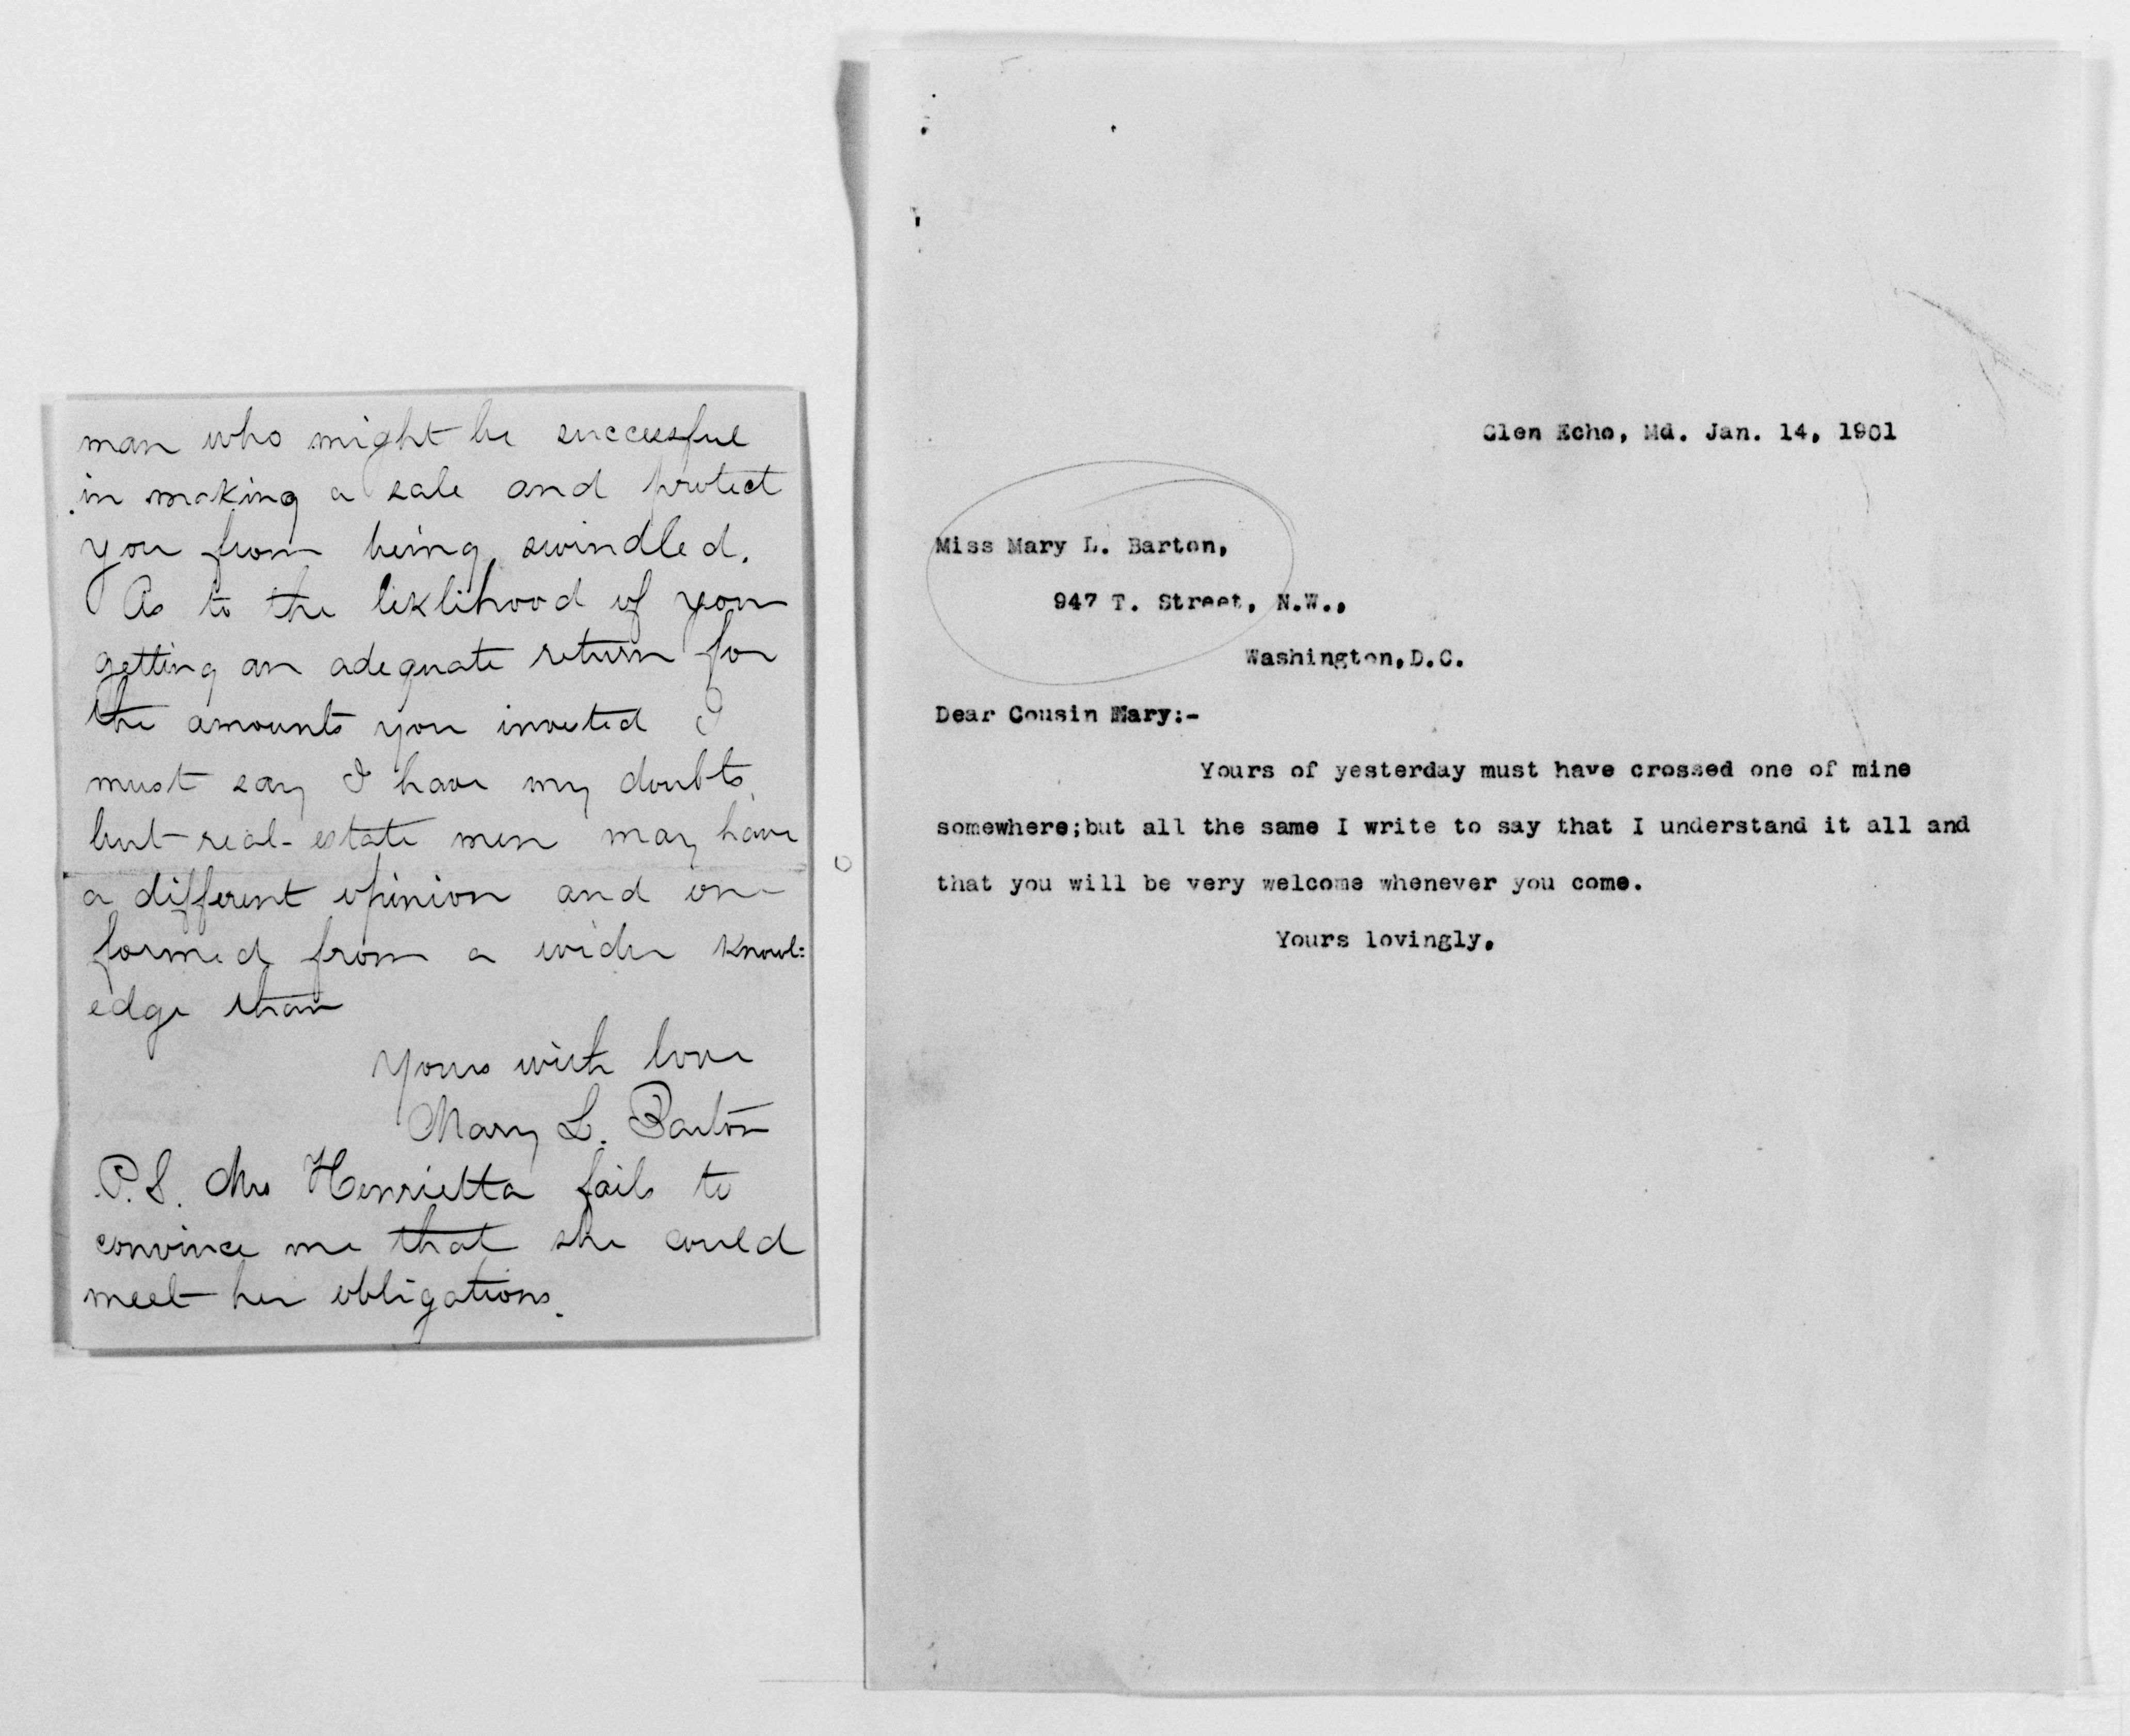 man who might be successful
in making a sale and protect
you from being swindled.
As to the liklihood of your
getting an adequate return for
the amounts you invested I
must say I have my doubts,
but real-estate men may have
a different opinion and one
formed from a wider knowl=
edge than
Yours with love
Mary L. Barton
P.S. Mrs Henrietta fails to
convince me that she could
meet her obligations.
Glen Echo, Md. Jan. 14, 1901
Miss Mary L. Barton,
947 T. Street, N.W.,
Washington,D.C.
Dear Cousin Mary:-
Yours of yesterday must have crossed one of mine
somewhere;but all the same I write to say that I understand it all and
that you will be very welcome whenever you come.
Yours lovingly,